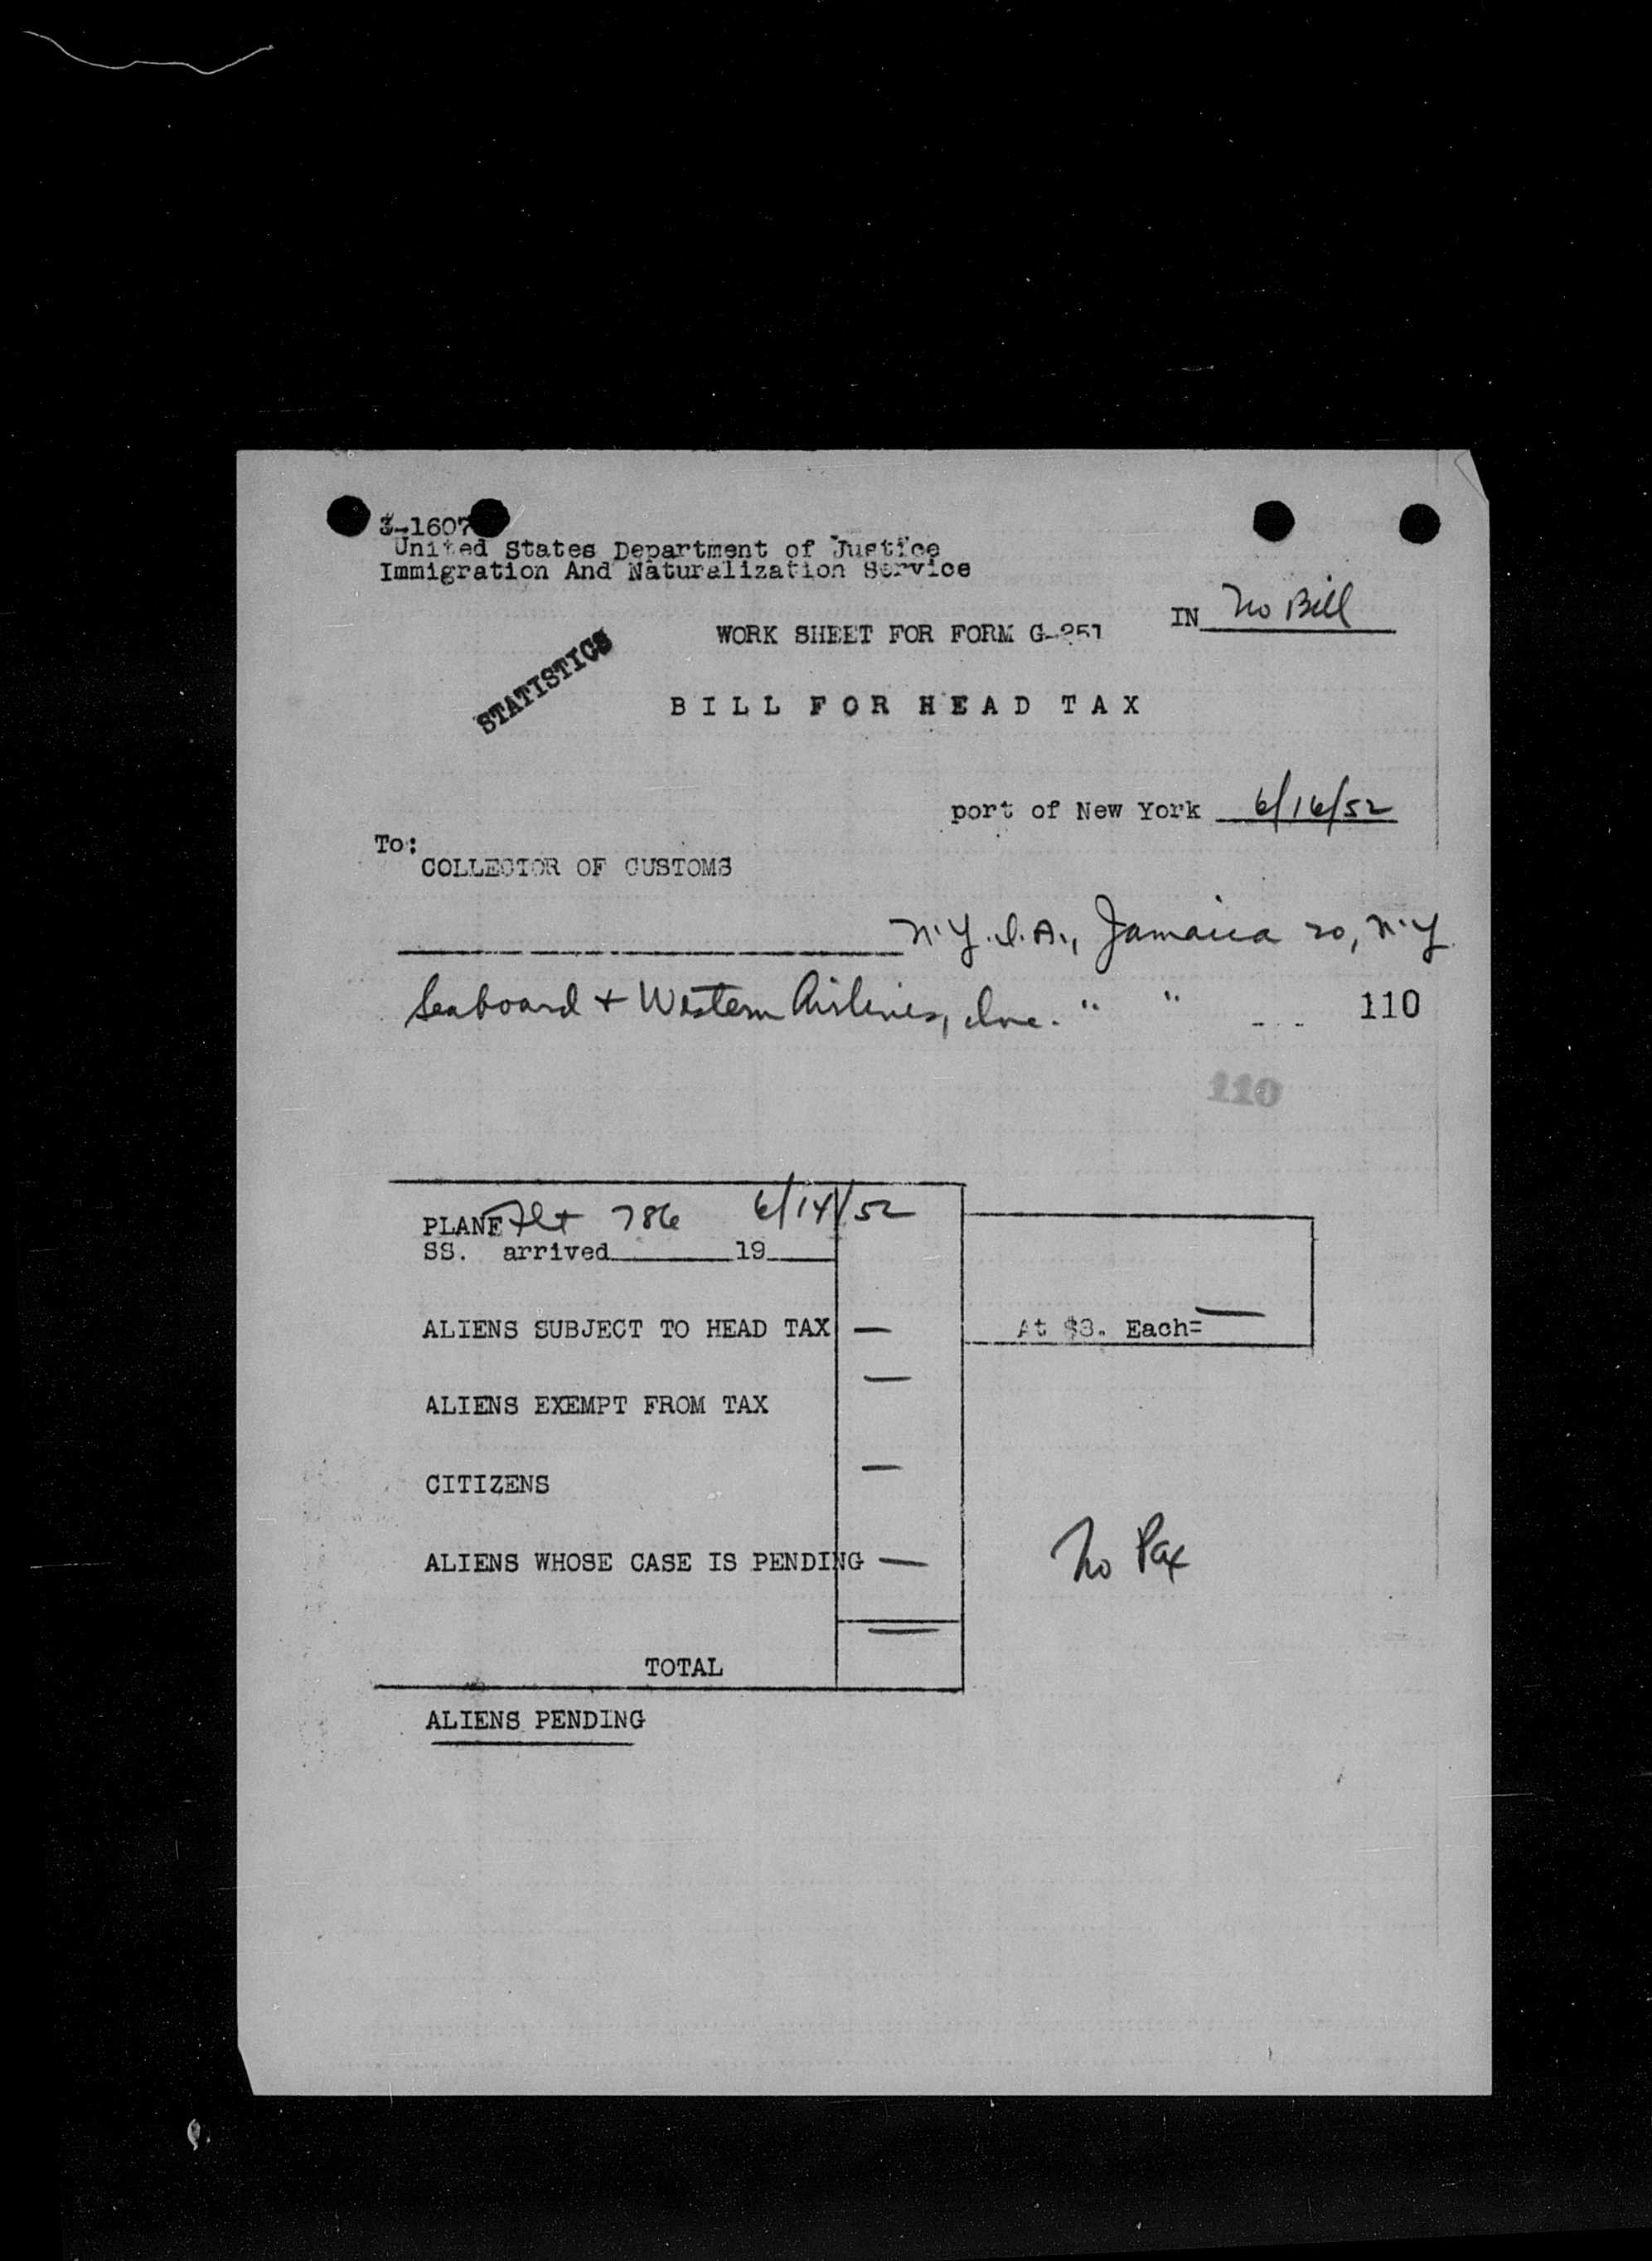 3-1607
United States Department of Justice
Immigration And Naturalization Service
IN No Bill
WORK SHEET FOR FORM G-251
STATISTICS
BILL FOR HEAD TAX
port of New York 6/16/52
To:
COLLECTOR OF CUSTOMS
N.Y.I.A., Jamaica 20, N.Y.
Seaboard + Western Airlines, Inc. " " 110
110
PLANE Flt 786 6/14/52
SS. arrived 19
ALIENS SUBJECT TO HEAD TAX — At $8. Each= —
ALIENS EXEMPT FROM TAX —
CITIZENS —
ALIENS WHOSE CASE IS PENDING —
No Pax
TOTAL —
ALIENS PENDING